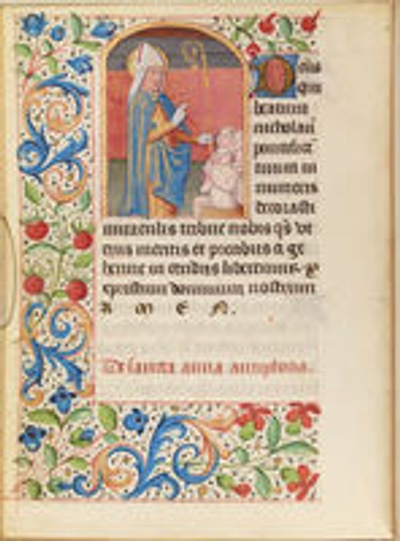 Deus
qui
beatum
nicholaū
pontificē
tuum in
numeris
decorasti
miraculis tribue nobis qs ut
eius meritis et precibus a ge
henne in cendiis liberemur. p
xpristum dominum nostrum
A M E N.
De sancta anna antiphona.